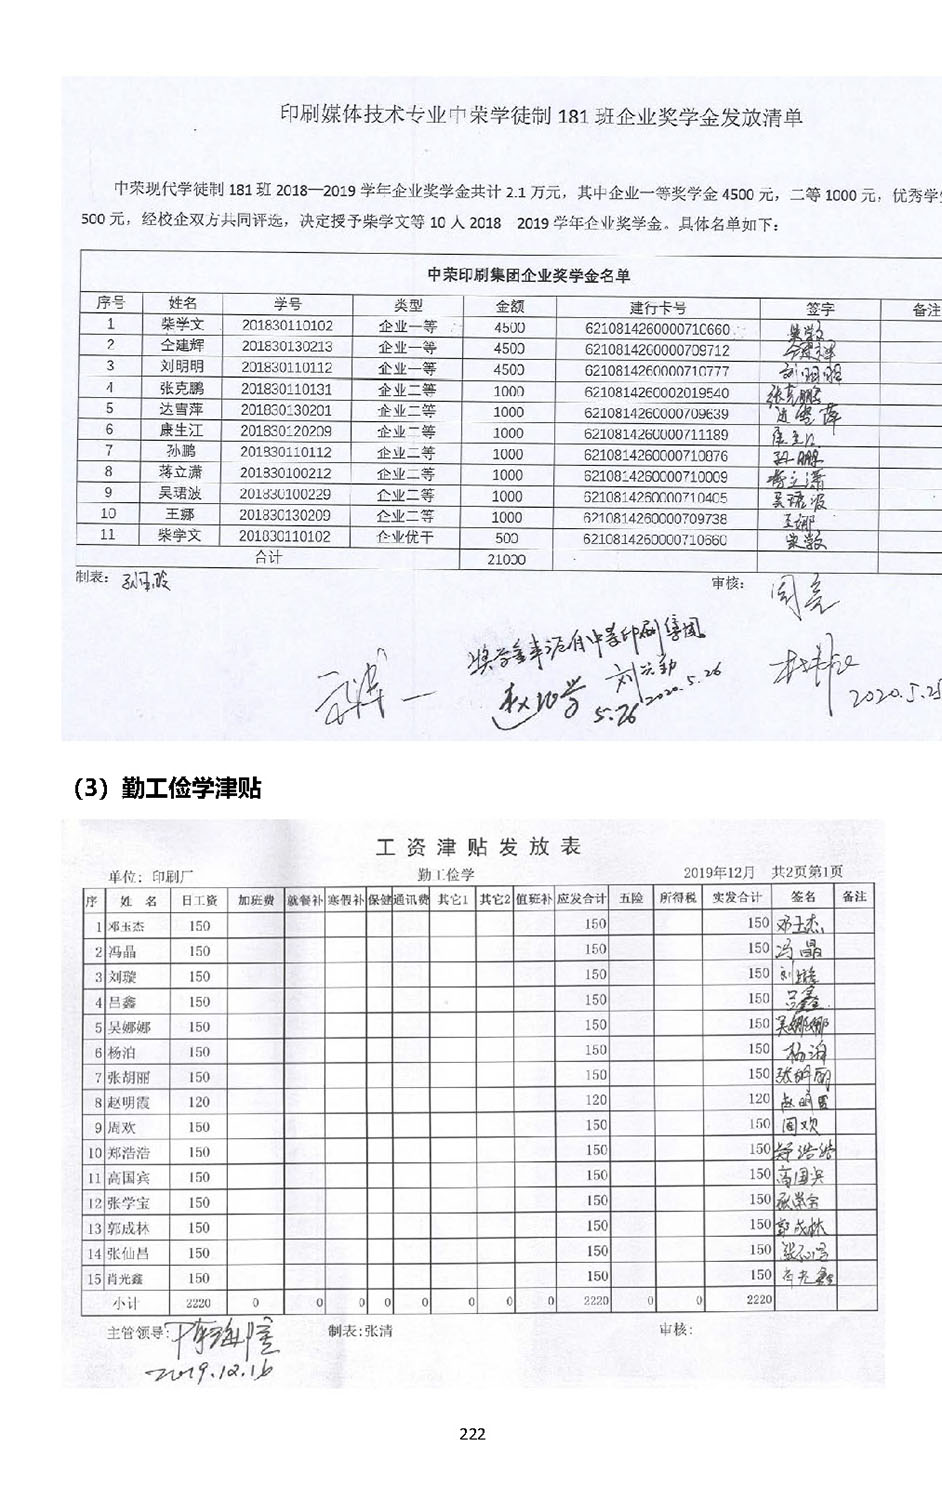 印刷媒体技术专业中荣学徒制 181 班企业奖学金发放清单
中荣现代学徒制 181 班 2018—2019 学年企业奖学金共计 2.1 万元，其中企业一等奖学金 4500 元，二等 1000 元，优秀学
500 元，经校企双方共同评选，决定授予柴学文等 10 人 2018 2019 学年企业奖学金。具体名单如下：
中荣印刷集团企业奖学金名单
序号 姓名 学号 类型 金额 建行卡号 签字 备注
1 柴学文 201830110102 企业一等 4500 6210814260000710660 柴学文
2 仝建辉 201830130213 企业一等 4500 6210814260000709712 仝建辉
3 刘明明 201830110112 企业一等 4500 6210814260000710777 刘明明
4 张克鹏 201830110131 企业二等 1000 6210814260002019540 张克鹏
5 达雪萍 201830130201 企业二等 1000 6210814260000709639 达雪萍
6 康生江 201830120209 企业二等 1000 6210814260000711189 康生江
7 孙鹏 201830110112 企业二等 1000 6210814260000710876 孙鹏
8 蒋立潇 201830100212 企业二等 1000 6210814260000710009 蒋立潇
9 吴珺波 201830100229 企业二等 1000 6210814260000710405 吴珺波
10 王娜 201830130209 企业二等 1000 6210814260000709738 王娜
11 柴学文 201830110102 企业优干 500 6210814260000710660 柴学文
合计 21000
制表： 审核： 周亮
奖学金来源有中荣印刷集团
刘云勤
2020.5.26
5.26
2020.5.25
（3）勤工俭学津贴
工资津贴发放表
单位：印刷厂 勤工俭学 2019年12月 共2页第1页
序 姓 名 日工资 加班费 就餐补 寒假补 保健 通讯费 其它1 其它2 值班补 应发合计 五险 所得税 实发合计 签名 备注
1 邓玉杰 150 150 150 邓玉杰
2 冯晶 150 150 150 冯晶
3 刘璇 150 150 150 刘璇
4 吕鑫 150 150 150 吕鑫
5 吴娜娜 150 150 150 吴娜娜
6 杨泊 150 150 150 杨泊
7 张胡丽 150 150 150 张胡丽
8 赵明霞 120 120 120 赵明霞
9 周欢 150 150 150 周欢
10 郑浩浩 150 150 150 郑浩浩
11 高国宾 150 150 150 高国宾
12 张学宝 150 150 150 张学宝
13 郭成林 150 150 150 郭成林
14 张仙昌 150 150 150 张仙昌
15 肖光鑫 150 150 150 肖光鑫
小计 2220 0 0 0 0 0 0 0 0 2220 0 0 2220
主管领导： 制表:张清 审核:
2019.12.16
222